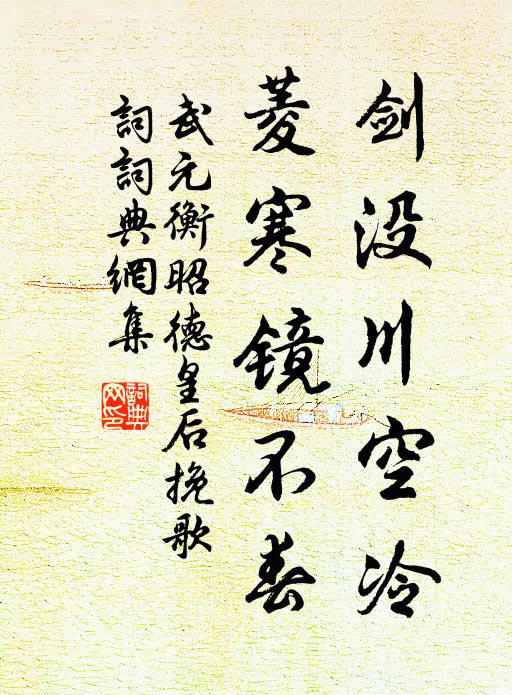 剑没川空冷
菱寒镜不春
武元衡昭德皇后挽歌
詞詞典網集
詞典網印